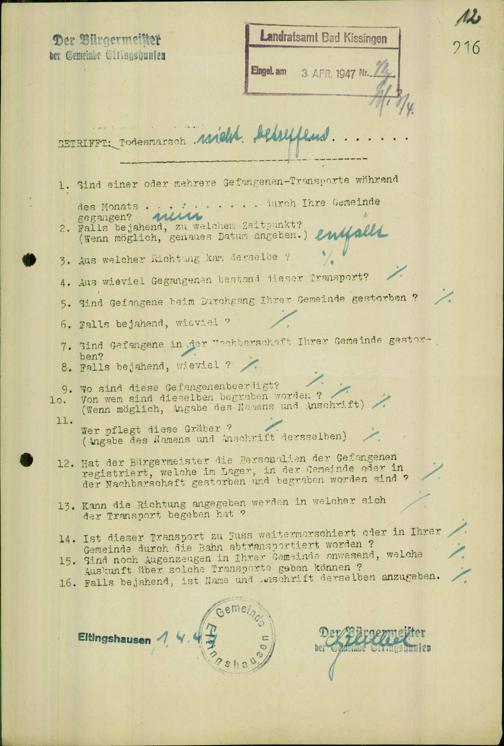 12
216
Der Bürgermeister
der Gemeinde Eltingshausen
Landratsamt Bad Kissingen
Eingel. am 3 APR. 1947 Nr.
BETRIFFT: Todesmarsch nicht betreffend . . . . . . .
1. Sind einer oder mehrere Gefangenen-Transporte während
des Monats . . . . . . . . . . durch Ihre Gemeinde
gegangen? nein
2. Falls bejahend, zu welchem Zeitpunkt?
(Wenn möglich, genaues Datum angeben.) entfällt
3. Aus welcher Richtung kam derselbe ? %
4. Aus wieviel Gegangenen bestand dieser Transport? %
5. Sind Gefangene beim Durchgang Ihrer Gemeinde gestorben ? %
6. Falls bejahend, wieviel ? %
7. Sind Gefangene in der Nachbarschaft Ihrer Gemeinde gestor-
ben? %
8. Falls bejahend, wieviel ? %
9. Wo sind diese Gefangenenbeerdigt? %
10. Von wem sind dieselben begraben worden ? %
(Wenn möglich, Angabe des Namens und Anschrift) %
11.
Wer pflegt diese Gräber ? %
(Angabe des Namens und Anschrift dersselben) %
12. Hat der Bürgermeister die Personalien der Gefangenen
registriert, welche im Lager, in der Gemeinde oder in
der Nachbarschaft gestorben und begraben worden sind ? %
13. Kann die Richtung angegeben werden in welcher sich
der Transport begeben hat ? %
14. Ist dieser Transport zu Fuss weitermarschiert oder in Ihrer
Gemeinde durch die Bahn abtransportiert worden ? %
15. Sind noch Augenzeugen in Ihrer Gemeinde anwesend, welche
Auskunft über solche Transporte geben können ? %
16. Falls bejahend, ist Name und Anschrift derselben anzugeben. %
Eltingshausen 1.4.4
Gemeinde
Eltingshausen
Der Bürgermeister
der Gemeinde Eltingshausen